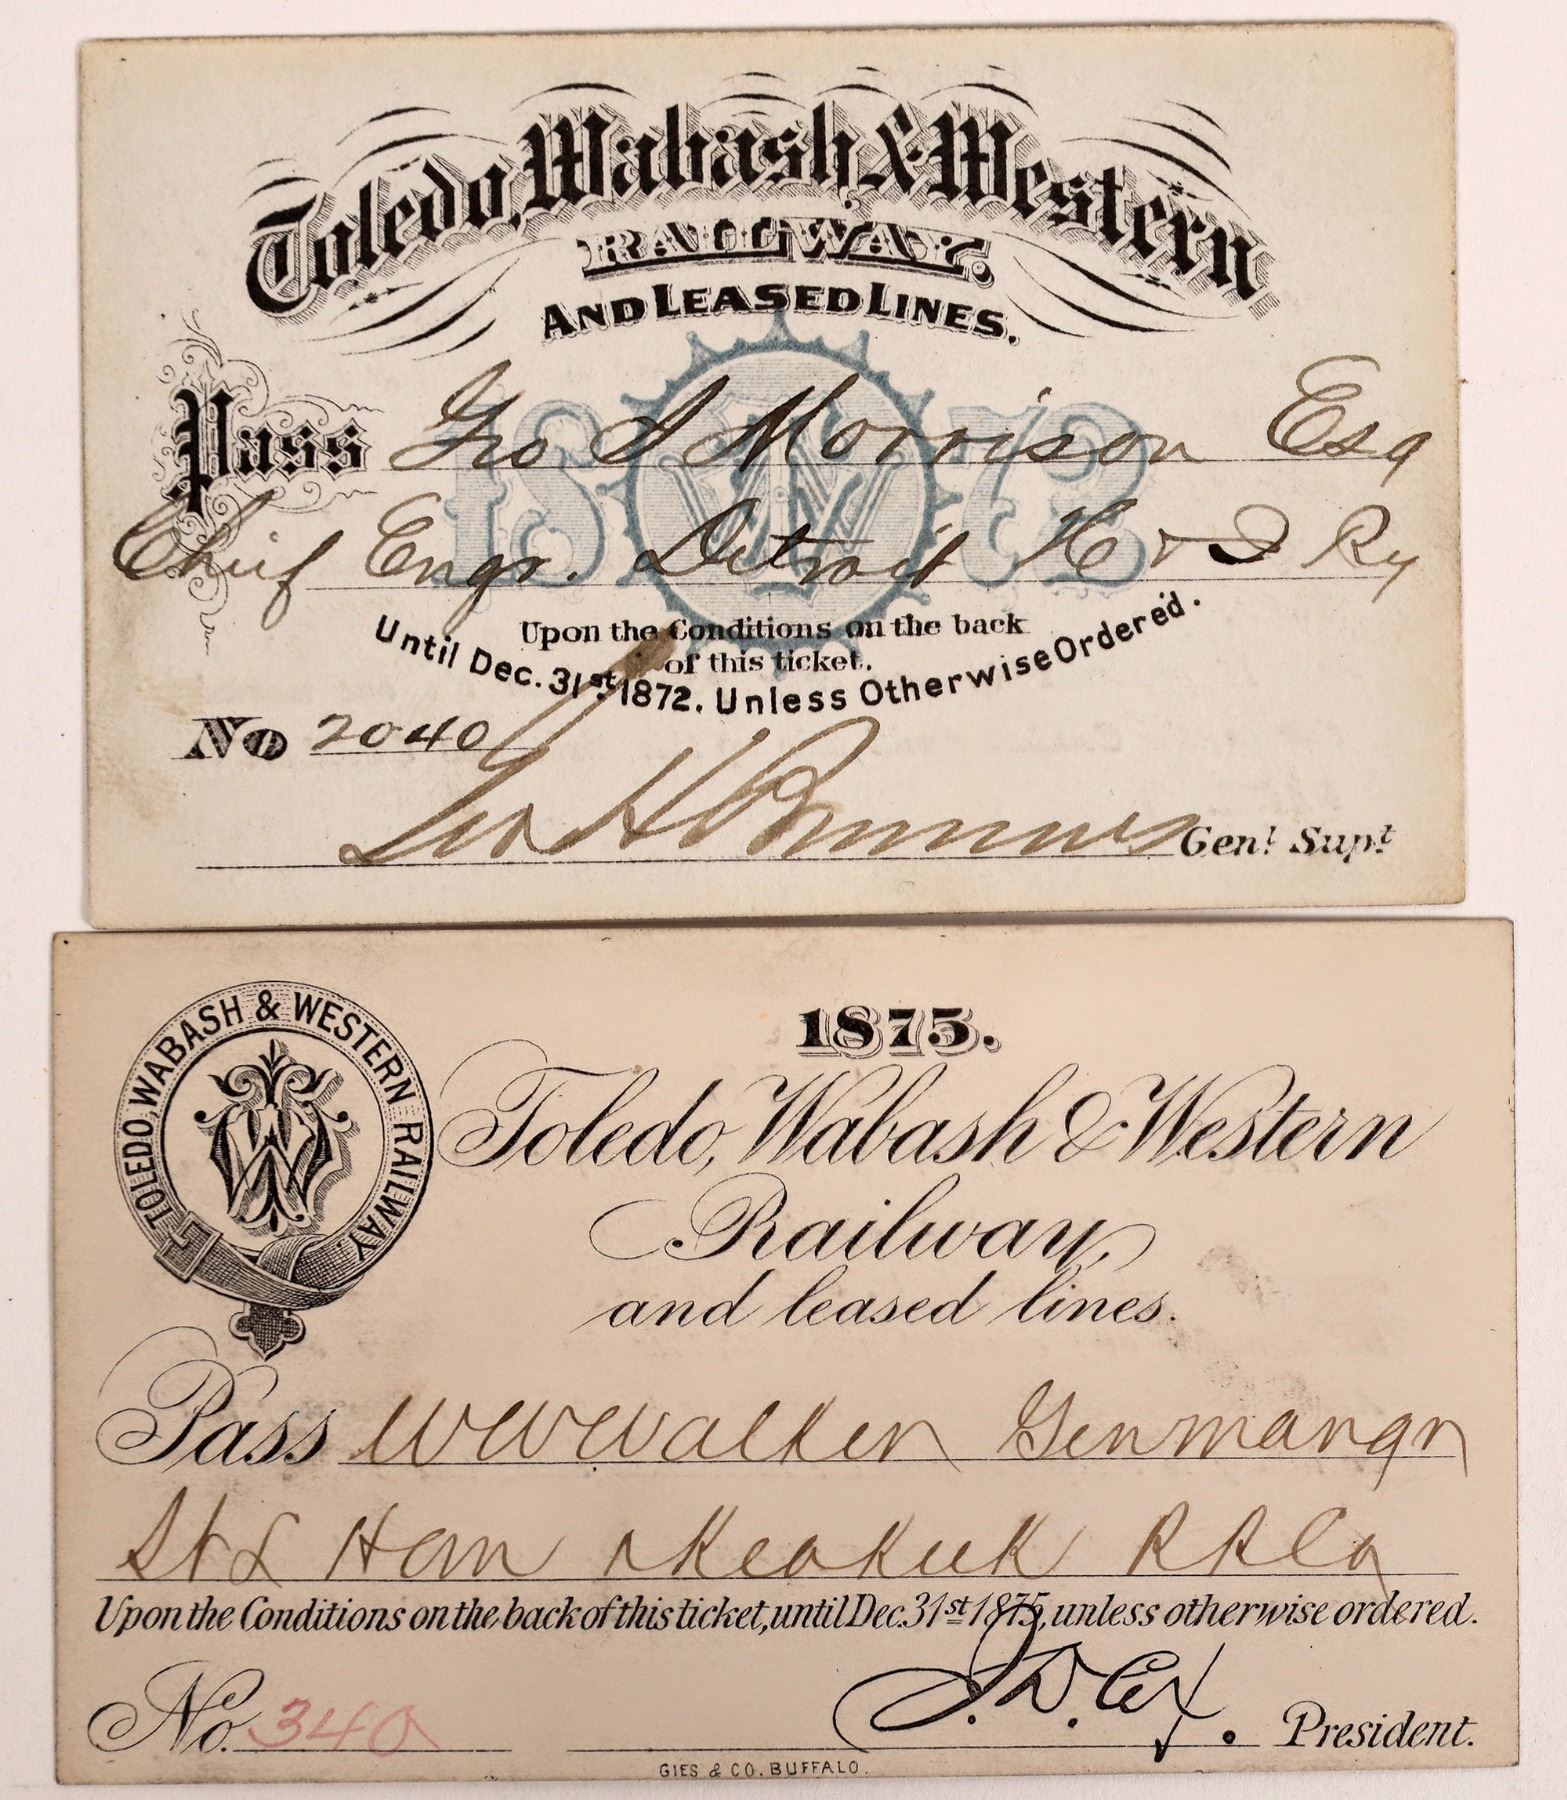 Toledo, Wabash & Western
RAILWAY.
AND LEASED LINES.
1872
TWW
Pass Geo S Morrison Esq
Chief Engr. Detroit H & I Ry
Upon the Conditions on the back
of this ticket.
Until Dec. 31st 1872. Unless Otherwise Ordered.
No 2040
Geo H Gen! Supt
TOLEDO, WABASH & WESTERN RAILWAY.
1875.
Toledo, Wabash & Western
Railway,
and leased lines.
Pass WW Walker Genmangr
St L Han & Keokuk RR Co
Upon the Conditions on the back of this ticket, until Dec. 31st 1875, unless otherwise ordered.
No. 340
J. D. Cox. President.
GIES & CO. BUFFALO.